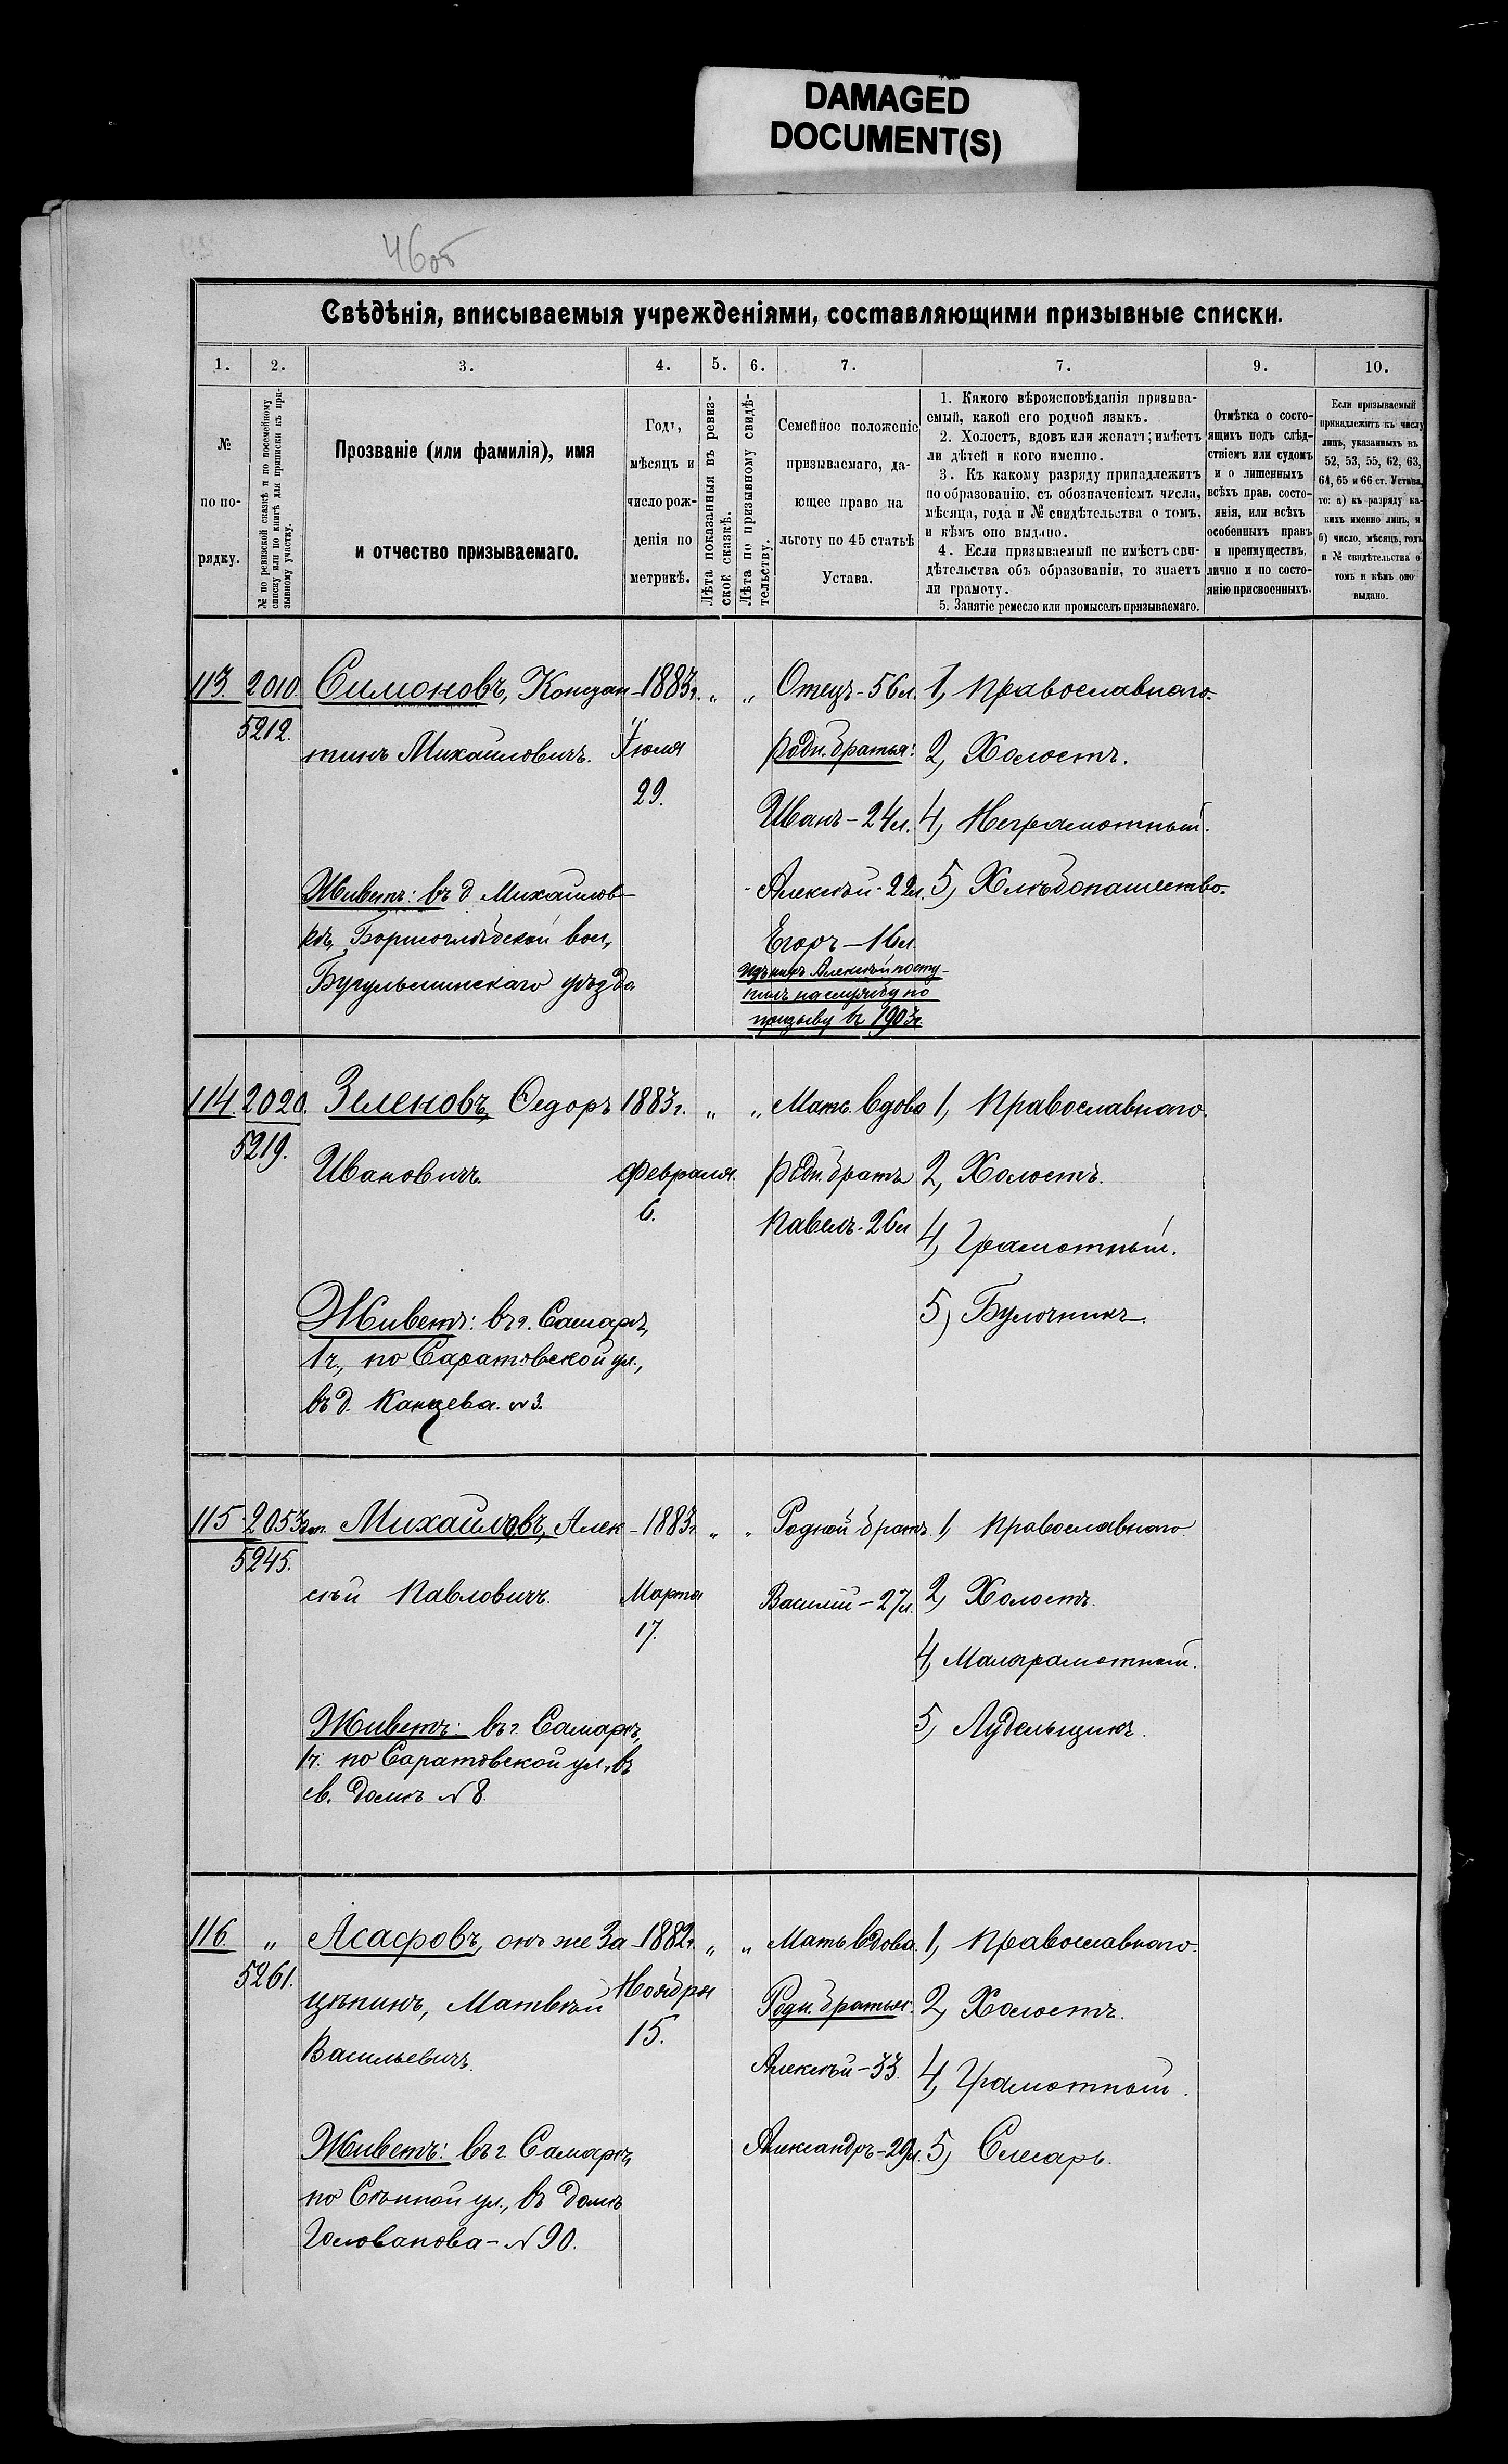 DAMAGED
DOCUMENT(S)
46об
Свѣдѣнія, вписываемыя учрежденіями, составляющими призывные списки.
1. 2. 3. 4. 5. 6. 7. 7. 9. 10.
№
по по-
рядку.
№ по ревизской сказкѣ и по посемейному
списку или по книгѣ для приписки къ при-
зывному участку.
Прозваніе (или фамилія), имя
и отчество призываемаго.
Годъ,
мѣсяцъ и
число рож-
денія по
метрикѣ.
Лѣта показанныя въ ревиз-
ской сказкѣ.
Лѣта по призывному свидѣ-
тельству.
Семейное положеніе
призываемаго, да-
ющее право на
льготу по 45 статьѣ
Устава.
1. Какого вѣроисповѣданія призыва-
емый, какой его родной языкъ.
2. Холостъ, вдовъ или женатъ; имѣетъ
ли дѣтей и кого именно.
3. Къ какому разряду принадлежитъ
по образованію, съ обозначеніемъ числа,
мѣсяца, года и № свидѣтельства о томъ,
и кѣмъ оно выдано.
4. Если призываемый не имѣетъ сви-
дѣтельства объ образованіи, то знаетъ
ли грамоту.
5. Занятіе ремесло или промыселъ призываемаго.
Отмѣтка о состо-
ящихъ подъ слѣд-
ствіемъ или судомъ
и о лишенныхъ
всѣхъ прав, состо-
янія, или всѣхъ
особенныхъ правъ
и преимуществъ,
лично и по состо-
янію присвоенныхъ.
Если призываемый
принадлежитъ къ числу
лицъ, указанныхъ въ
52, 53, 55, 62, 63,
64, 65 и 66 ст. Устава,
то: а) къ разряду ка-
кихъ именно лицъ, и
б) число, мѣсяцъ, годъ
и № свидѣтельства о
томъ и кѣмъ оно
выдано.
113. 2010.
5212.
Симоновъ, Констан-
тинъ Михаиловичъ.
Живетъ: въ д. Михаилов-
кѣ, Борисоглѣбской вол.,
Бугульминскаго уѣзда
1883г.
Іюля
29.
" "
Отецъ - 56л.
Родн. братья:
Иванъ - 24л.
Алексѣй - 22л.
Егоръ - 16л.
Изъ нихъ Алексѣй посту-
пилъ на службу по
призыву въ 1903г.
1, Православнаго.
2, Холостъ.
4, Неграмотный.
5, Хлѣбопашество.
114. 2020.
5219.
Зеленовъ, Ѳедоръ
Ивановичъ.
Живетъ: въ г. Самарѣ,
1 ч., по Саратовской ул.,
въ д. Канцева. № 3.
1883г.
Февраля
6.
" "
Мать вдова
Родн. братъ
Павелъ - 26л
1, Православнаго.
2, Холостъ.
4, Грамотный.
5, Булочникъ.
115. 2053
5245.
Михаиловъ, Алек-
сѣй Павловичъ.
Живетъ: въ г. Самарѣ,
1 ч. по Саратовской ул., въ
св. домѣ № 8.
1883г.
Марта
17.
" "
Родной братъ
Василій - 27л.
1, Православнаго.
2, Холостъ.
4, Малограмотный.
5, Лудельщикъ.
116. "
5261.
Асафовъ, онъ же За-
цѣпинъ, Матвѣй
Васильевичъ.
Живетъ: въ г. Самарѣ,
по Сѣнной ул., въ домѣ
Голованова - № 90.
1882г.
Ноября
15.
" "
Мать вдова.
Родн. братья:
Алексѣй - 33.
Александръ - 29л.
1, Православнаго.
2, Холостъ.
4, Грамотный.
5, Слесарь.